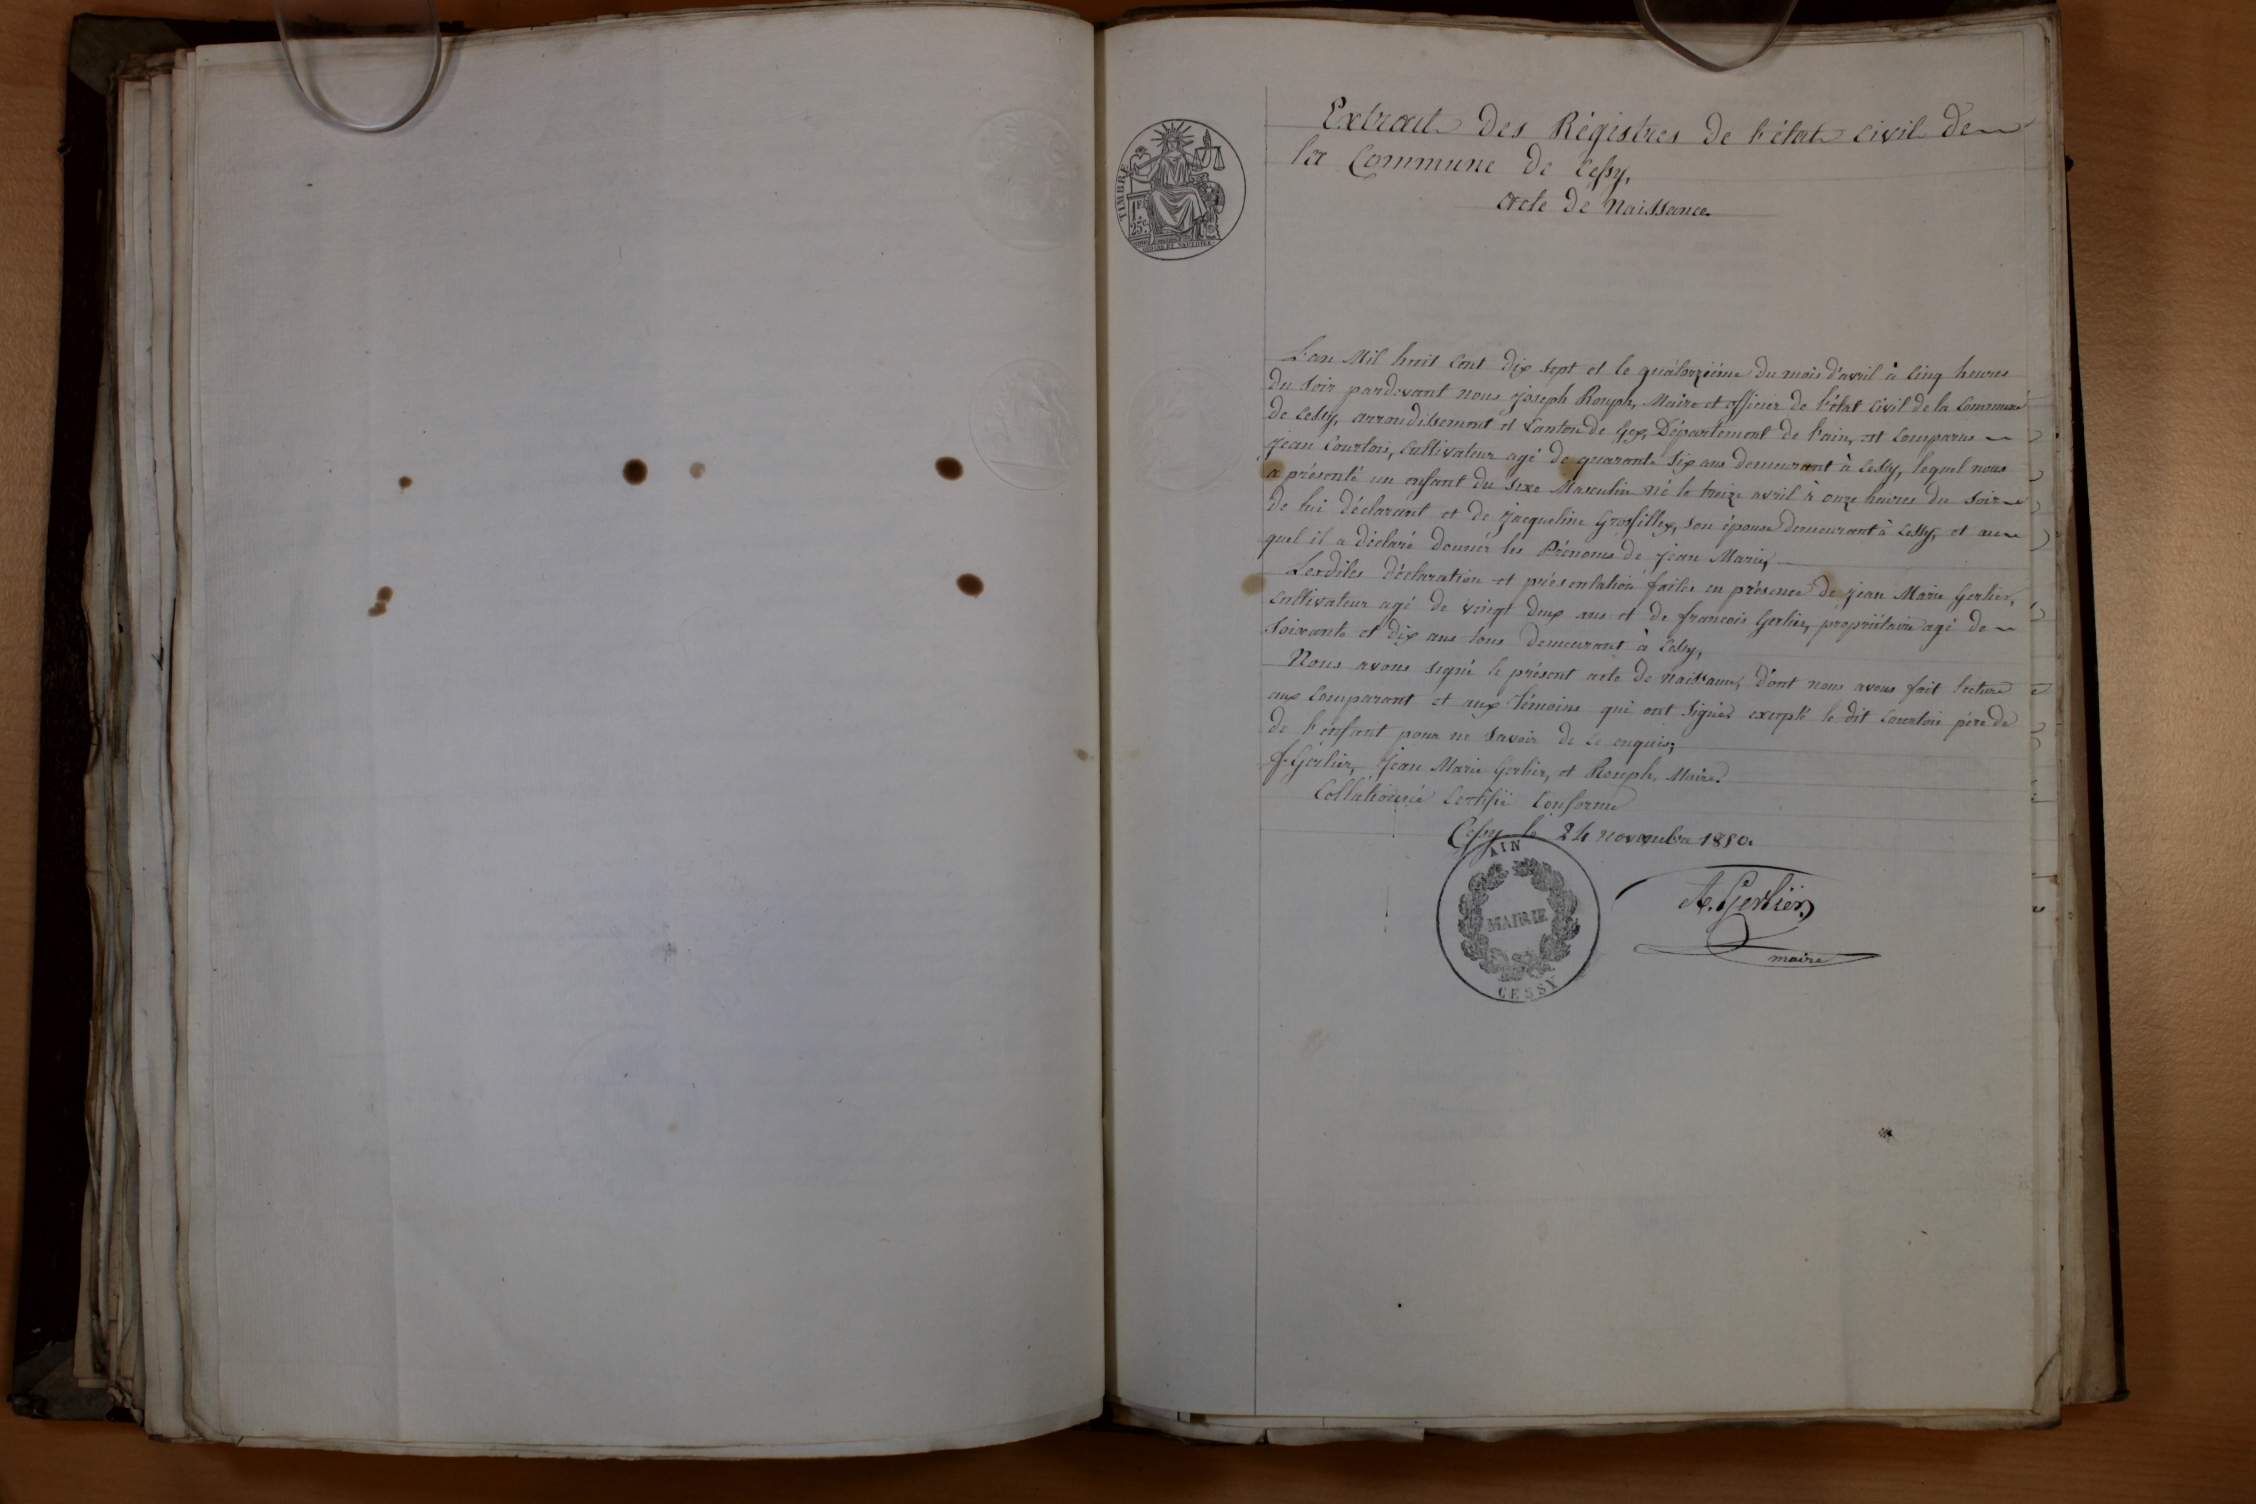 Extrait des Régistres de l'état civil de
la Commune de Cessy,
acte de Naissance.
TIMBRE
1F
25c
L'an Mil huit Cent dix sept et le quatorzième du mois d'avril à Cinq heures
du soir pardevant nous joseph Rouph, Maire et officier de l'état Civil de la Commune
de Cessy, arrondissement et Canton de Gex, Département de l'ain, est Comparu
Jean Courtois, Cultivateur agé de quarante six ans demeurant à Cessy, lequel nous
a présenté un enfant du sexe Masculin né le treize avril à onze heures du soir
de lui déclarant et de jacqueline Grosfilley, son épouse demeurant à Cessy, et au
quel il a déclaré donner les Prénoms de jean Marie,
Lesdites déclaration et présentation faites en présence de jean Marie Gerlier,
Cultivateur agé de vingt deux ans et de francois Gerlier, propriétaire agé de
Soixante et dix ans tous demeurant à Cessy,
Nous avons signé le présent acte de naissance, dont nous avons fait lecture
aux Comparant et aux Témoins qui ont signés excepté le dit Courtois père de
de l'enfant pour ne savoir de ce enquis;
f. Gerlier, Jean Marie Gerlier, et Rouph, Maire.
Collationné Certifié Conforme
Cessy le 24 novembre 1850.
AIN
MAIRIE
CESSY
A. Gerlier
maire